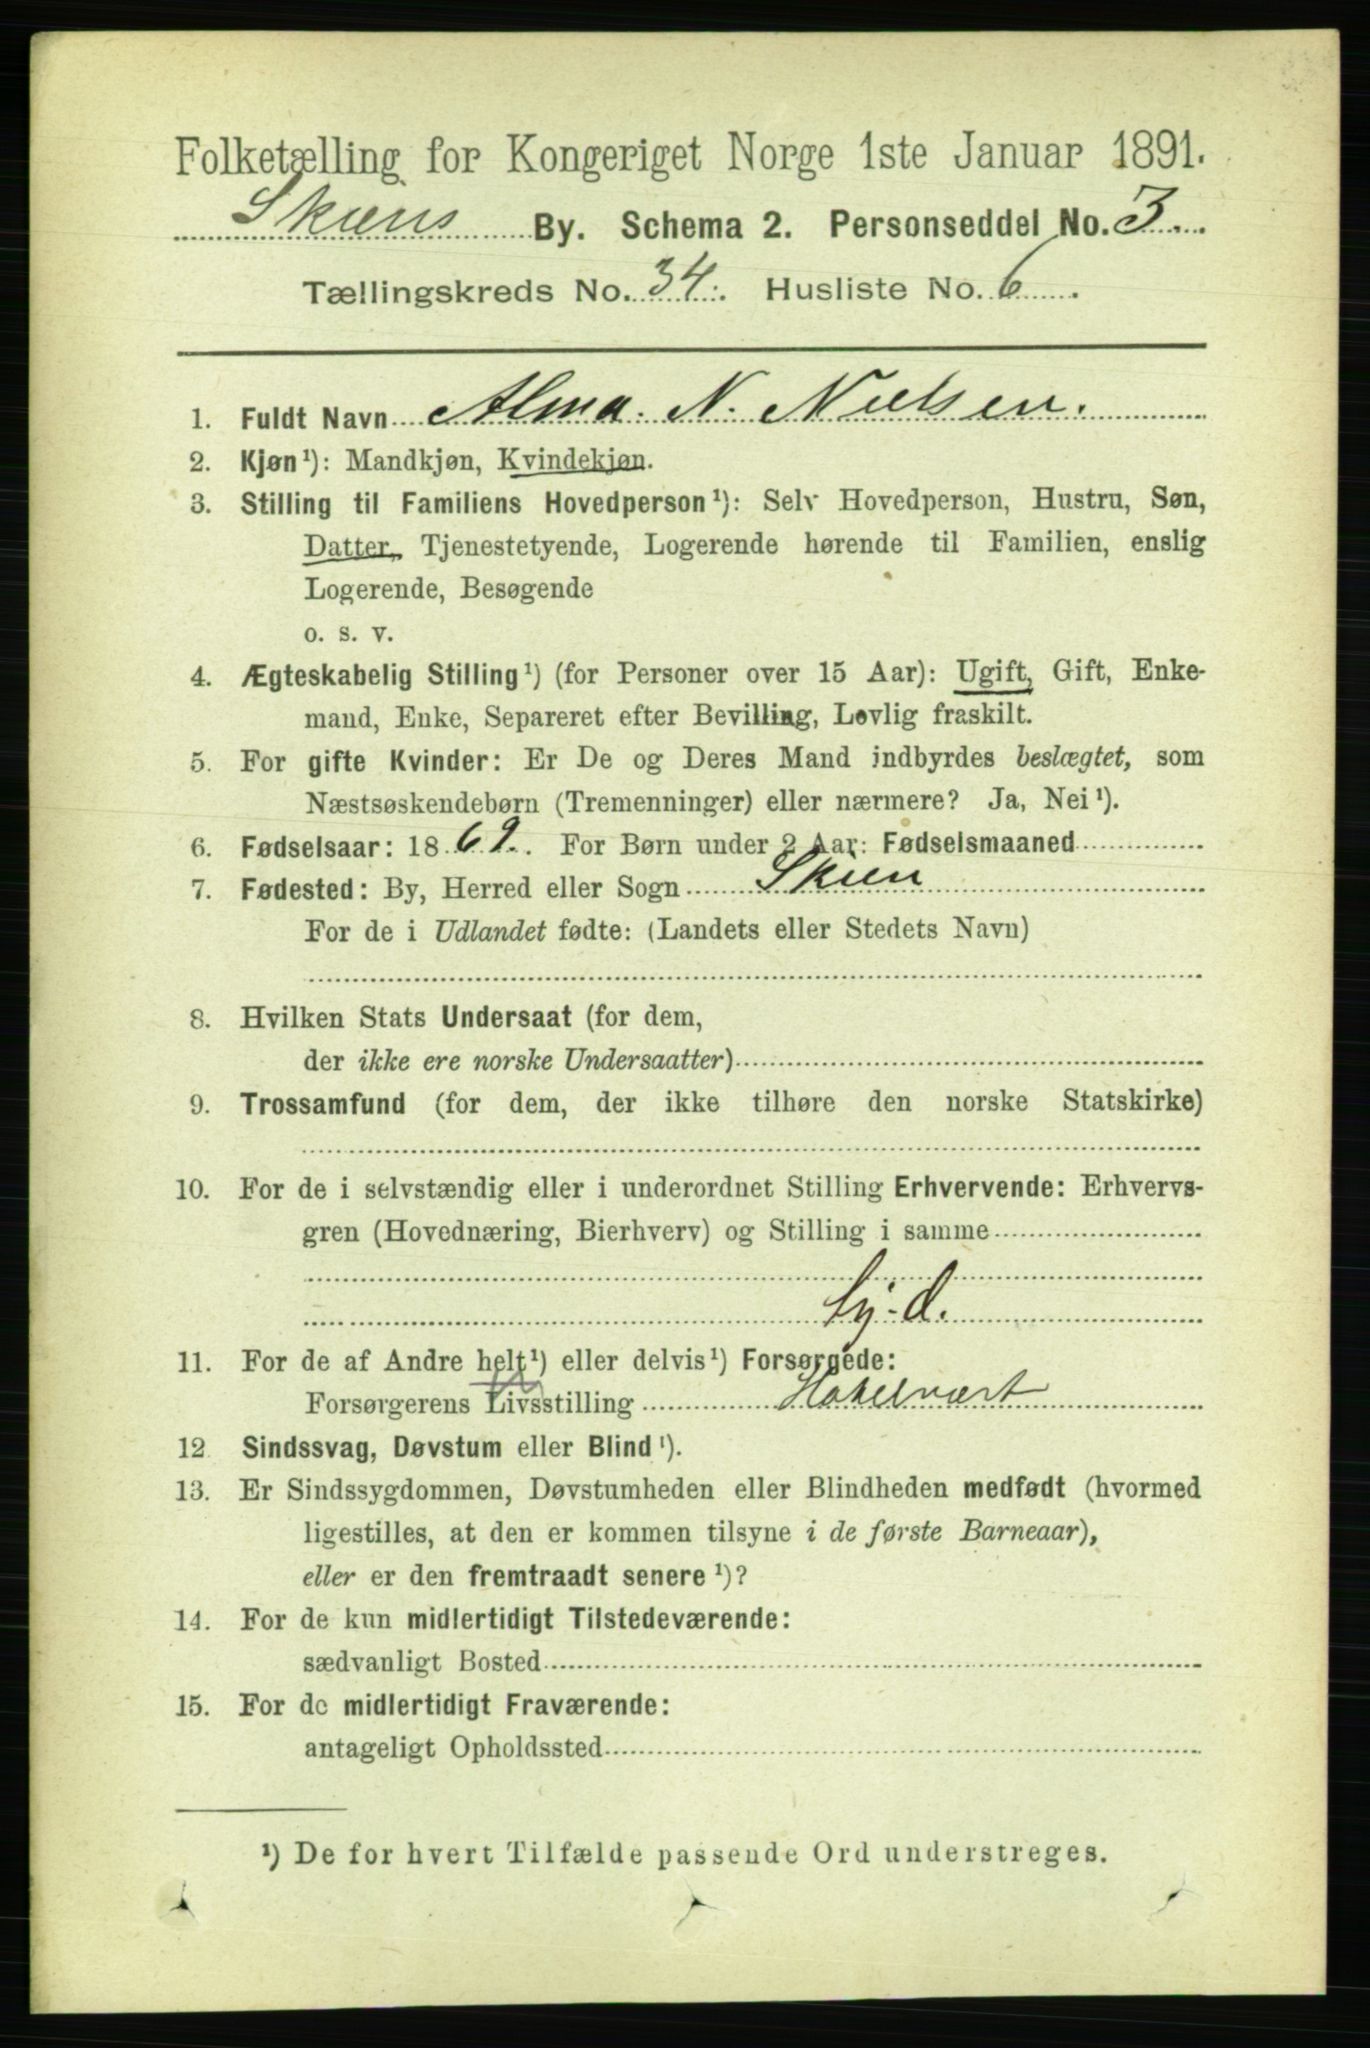 Folketælling for Kongeriget Norge 1ste Januar 1891.
Skiens By. Schema 2. Personseddel No. 3.
Tællingskreds No. 34. Husliste No. 6.
1. Fuldt Navn Alma. N. Nielsen.
2. Kjøn¹): Mandkjøn, Kvindekjøn.
3. Stilling til Familiens Hovedperson¹): Selv Hovedperson, Hustru, Søn,
Datter, Tjenestetyende, Logerende hørende til Familien, enslig
Logerende, Besøgende
o. s. v.
4. Ægteskabelig Stilling¹) (for Personer over 15 Aar): Ugift, Gift, Enke-
mand, Enke, Separeret efter Bevilling, Lovlig fraskilt.
5. For gifte Kvinder: Er De og Deres Mand indbyrdes beslægtet, som
Næstsøskendebørn (Tremenninger) eller nærmere? Ja, Nei¹).
6. Fødselsaar: 1869. For Børn under 2 Aar: Fødselsmaaned
7. Fødested: By, Herred eller Sogn Skien
For de i Udlandet fødte: (Landets eller Stedets Navn)
8. Hvilken Stats Undersaat (for dem,
der ikke ere norske Undersaatter)
9. Trossamfund (for dem, der ikke tilhøre den norske Statskirke)
10. For de i selvstændig eller i underordnet Stilling Erhvervende: Erhvervs-
gren (Hovednæring, Bierhverv) og Stilling i samme
11. For de af Andre helt¹) eller delvis¹) Forsørgede:
Forsørgerens Livsstilling Hotelvært
12 Sindssvag, Døvstum eller Blind¹).
13. Er Sindssygdommen, Døvstumheden eller Blindheden medfødt (hvormed
ligestilles, at den er kommen tilsyne i de første Barneaar),
eller er den fremtraadt senere¹)?
14. For de kun midlertidigt Tilstedeværende:
sædvanligt Bosted
15. For de midlertidigt Fraværende:
antageligt Opholdssted
¹) De for hvert Tilfælde passende Ord understreges.